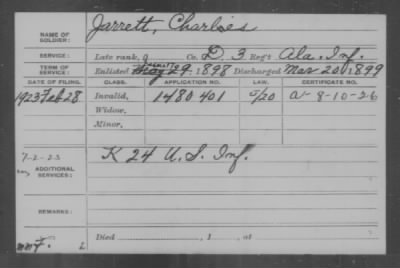 NAME OF SOLDIER: Jarrett, Charlies
SERVICE: Late rank, Co. D. 3 Reg't Ala. Inf.
TERM OF SERVICE: Enlisted 29, 1898 Discharged Mar 20, 1899
DATE OF FILING. CLASS. APPLICATION NO. LAW. CERTIFICATE NO.
1923 Feb 28 Invalid, 1480 401 5/20 8-10-26
Widow,
Minor,
7-2-23
ADDITIONAL SERVICES: K 24 U. S. Inf.
REMARKS:
Died , 1 , at